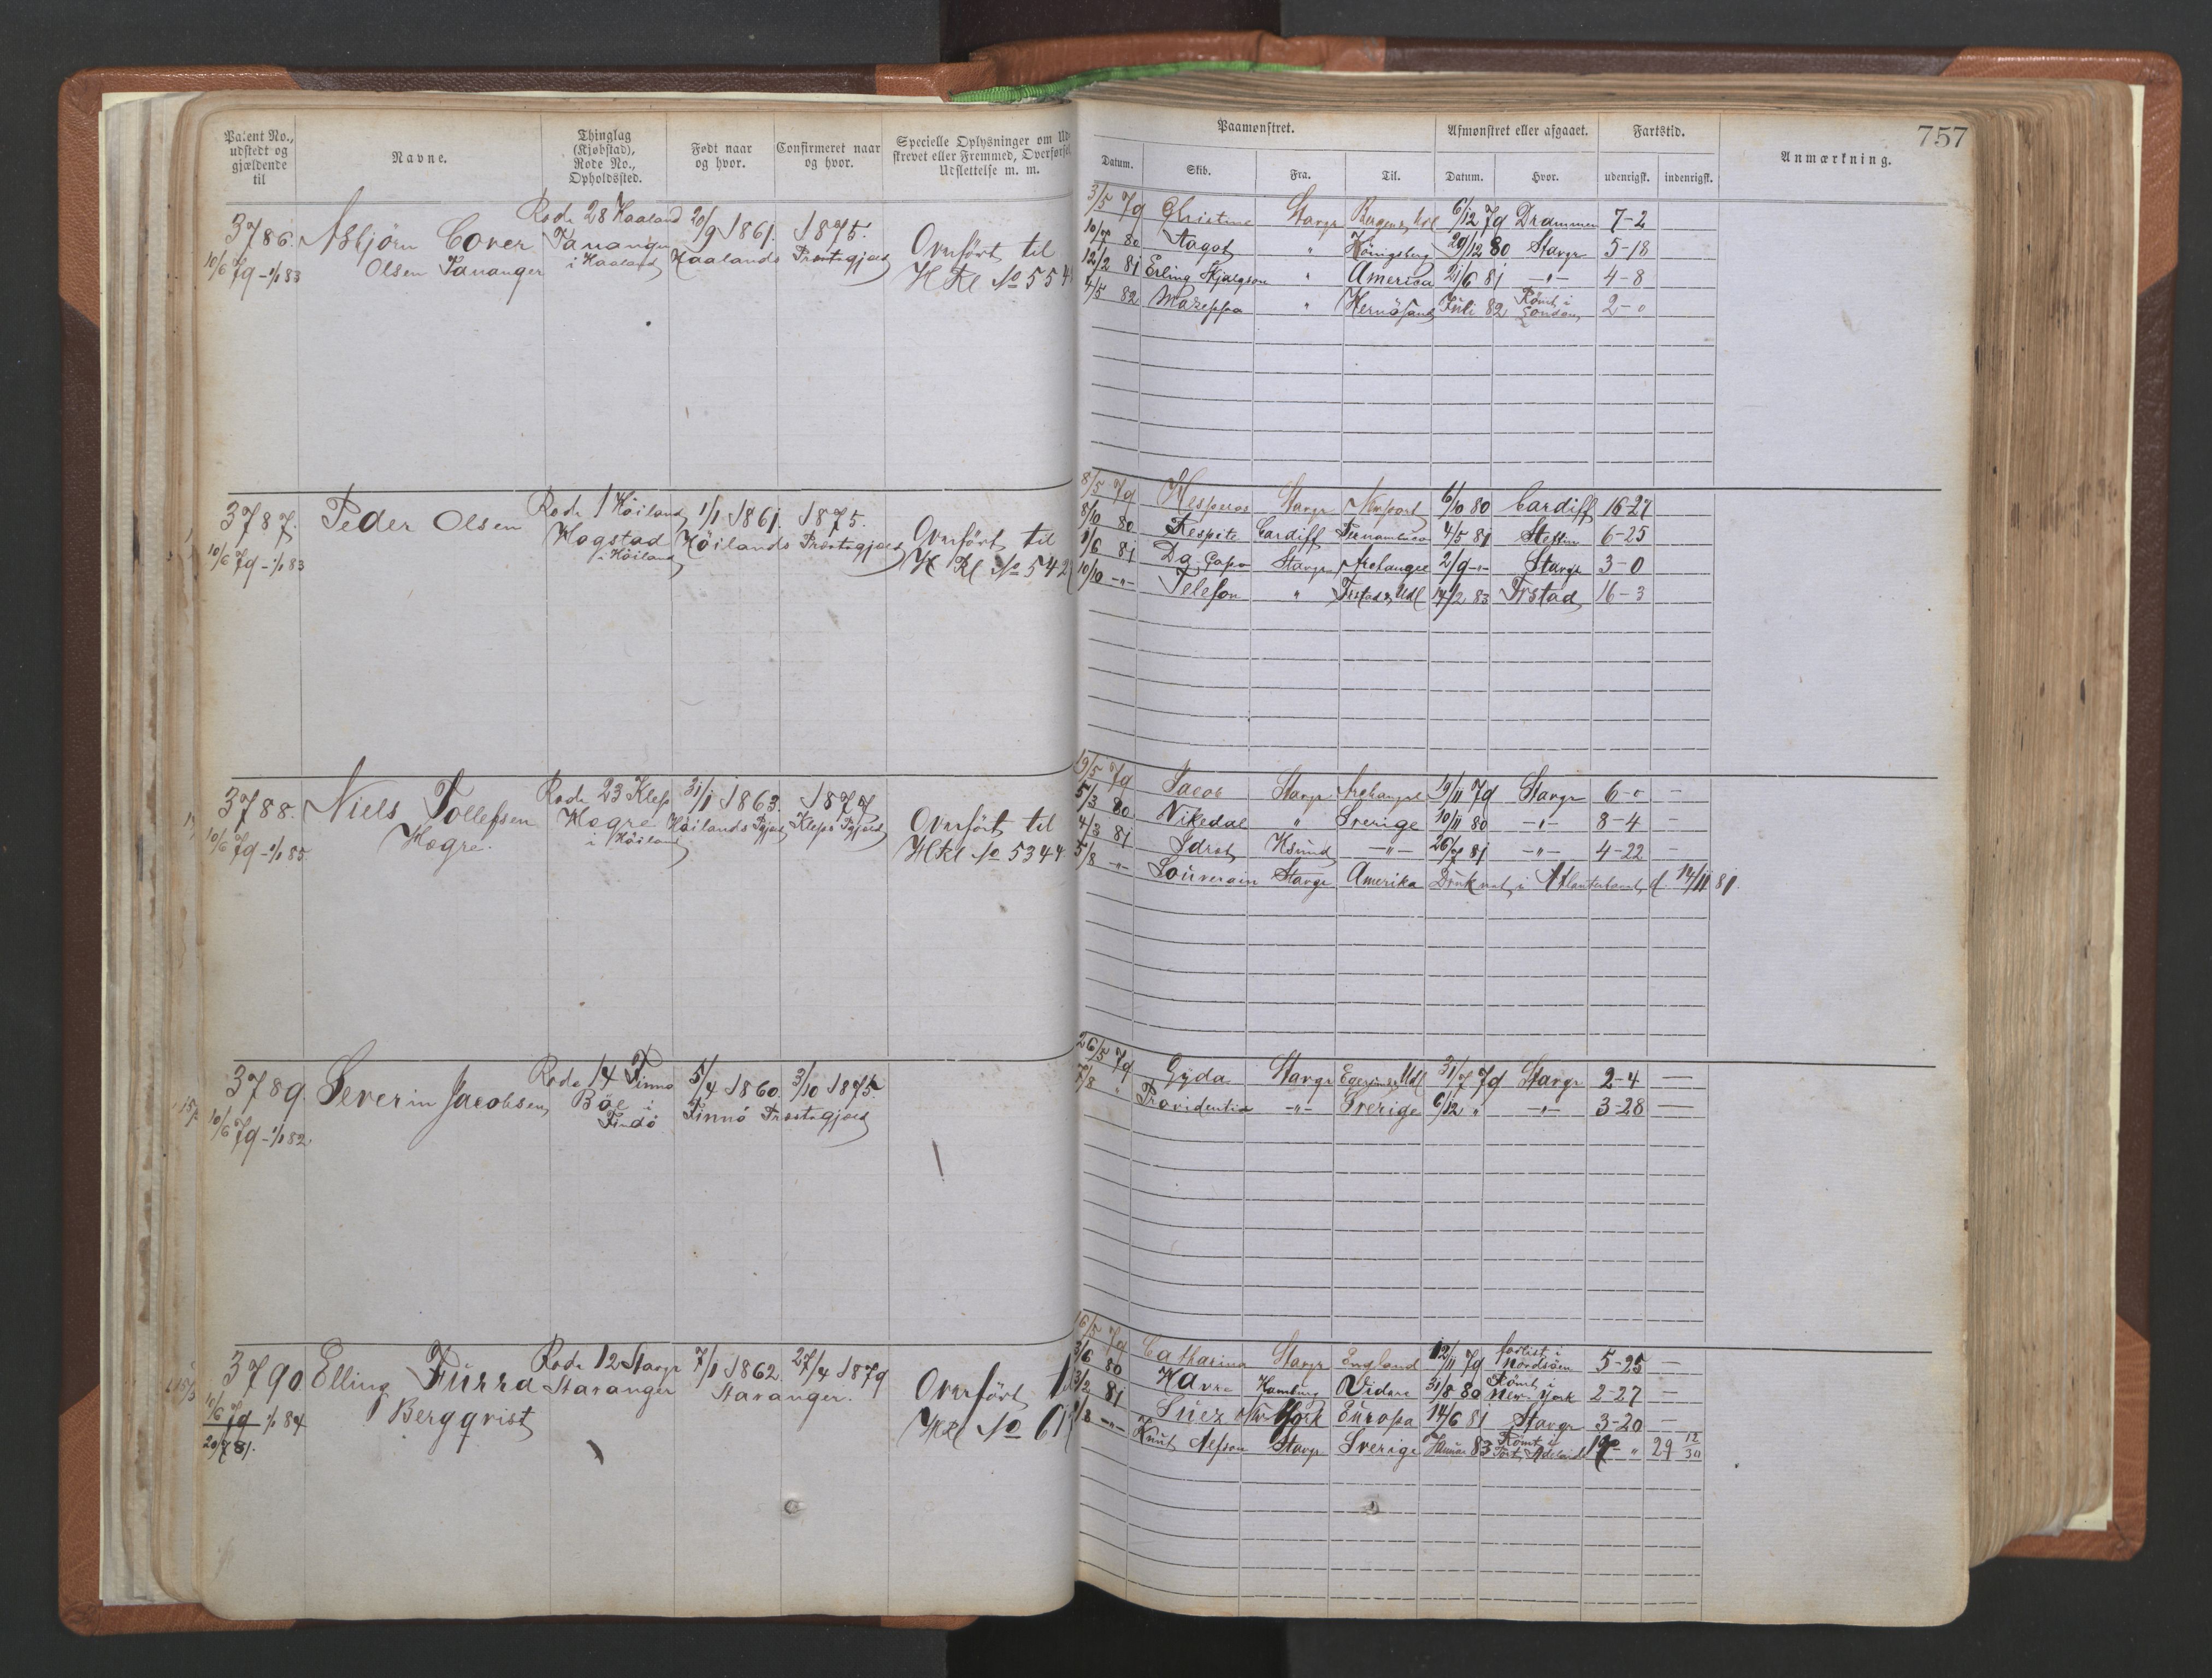 757
Patent No., udstedt og gjældende til
Navne.
Thinglag (Kjøbstad), Rode No., Opholdssted.
Født naar og hvor.
Confirmeret naar og hvor.
Specielle Oplysninger om Ud-
skrevet eller Fremmed, Overførsel,
Udslettelse m. m.
Paamønstret.
Datum. Skib. Fra. Til.
Afmønstret eller afgaaet.
Datum. Hvor.
Fartstid.
udenrigsk. indenrigsk.
Anmærkning.
3786. Asbjørn Cover Rode 28 Haaland 20/9 1861. 1875. Overført til
10/6 79 - 1/1 83 Olsen Tananger Tananger i Haaland Haalands Præstegjæld HKl No 554
3/5 79 Christine Stavgr 6/12 79 Drammen 7-2
80 Aagot " Königsberg 29/12 80 Stavgr 5-18
12/2 81 Erling Skjalgson " America 21/6 81 -"- 4-8
4/5 82 Mazeppa " Hernösand Juli 82 Rømt i London 2-0
3787. Peder Olsen Rode 1 Höiland 1/1 1861. 1875. Overført til
10/6 79 - 1/1 83 Hogstad i Höiland Höilands Præstegjæld H Kl No 542
8/5 79 Hesperos Stavgr Newport 6/10 80 Cardiff 16-27
8/10 80 Respite Cardiff Pernambuco 4/5 81 Stettin 6-25
1/6 81 Stavgr Archangel 2/9 -"- Stavgr 3-0
10/10 -"- Telefon " Frstad & Udl 14/2 83 Frstad 16-3
3788. Niels Tollefsen Rode 23 Klep 31/1 1863. 1877 Overført til
10/6 79 - 1/1 85. Hogre. Hogre i Höiland Höilands Pgjæld Klepp Pgjæld HKl No 5344
19/5 79 Jacob Stavgr Archangel 19/11 79 Stavgr 6-0 -
5/3 80 Vikedal " Sverige 10/11 80 -"- 8-4 -
4/3 81 Idræt Ksund -"- 26/7 81 -"- 4-22 -
5/8 -"- Souverain Stavgr Amerika Druknet i Atlanterhavet d. 14/11 81.
3789. Severin Jacobsen Rode 14 Finnø 5/4 1860 3/10 1875.
10/6 79 - 1/1 82. Böe i Findö Finnö Præstegjæld
26/5 79 Gyda Stavgr Egersund & Udl 31/7 79 Stavgr 2-4 -
7/8 " Providentia -"- Sverige 6/12 " -"- 3-28 -
3790 Elling Furra Rode 12 Stavgr 7/1 1862 27/4 1879 Overført
10/6 79 1/1 84 Bergqvist Stavanger Stavanger. HKl No 61
20/7 81.
16/5 79 Catharina Stavgr England 12/11 79 forlist i Nordsøen 5-25 -
3/6 80 Havre Hamburg Vidare 31/8 80 Rømt i New York 2-27 -
3/2 81 Suez New York Europa 14/6 81 Stavgr 3-20 -
/8 -"- Knut Alfson Stavgr Sverige Januar 83 Rømt i Port Adelaide 29 12/30